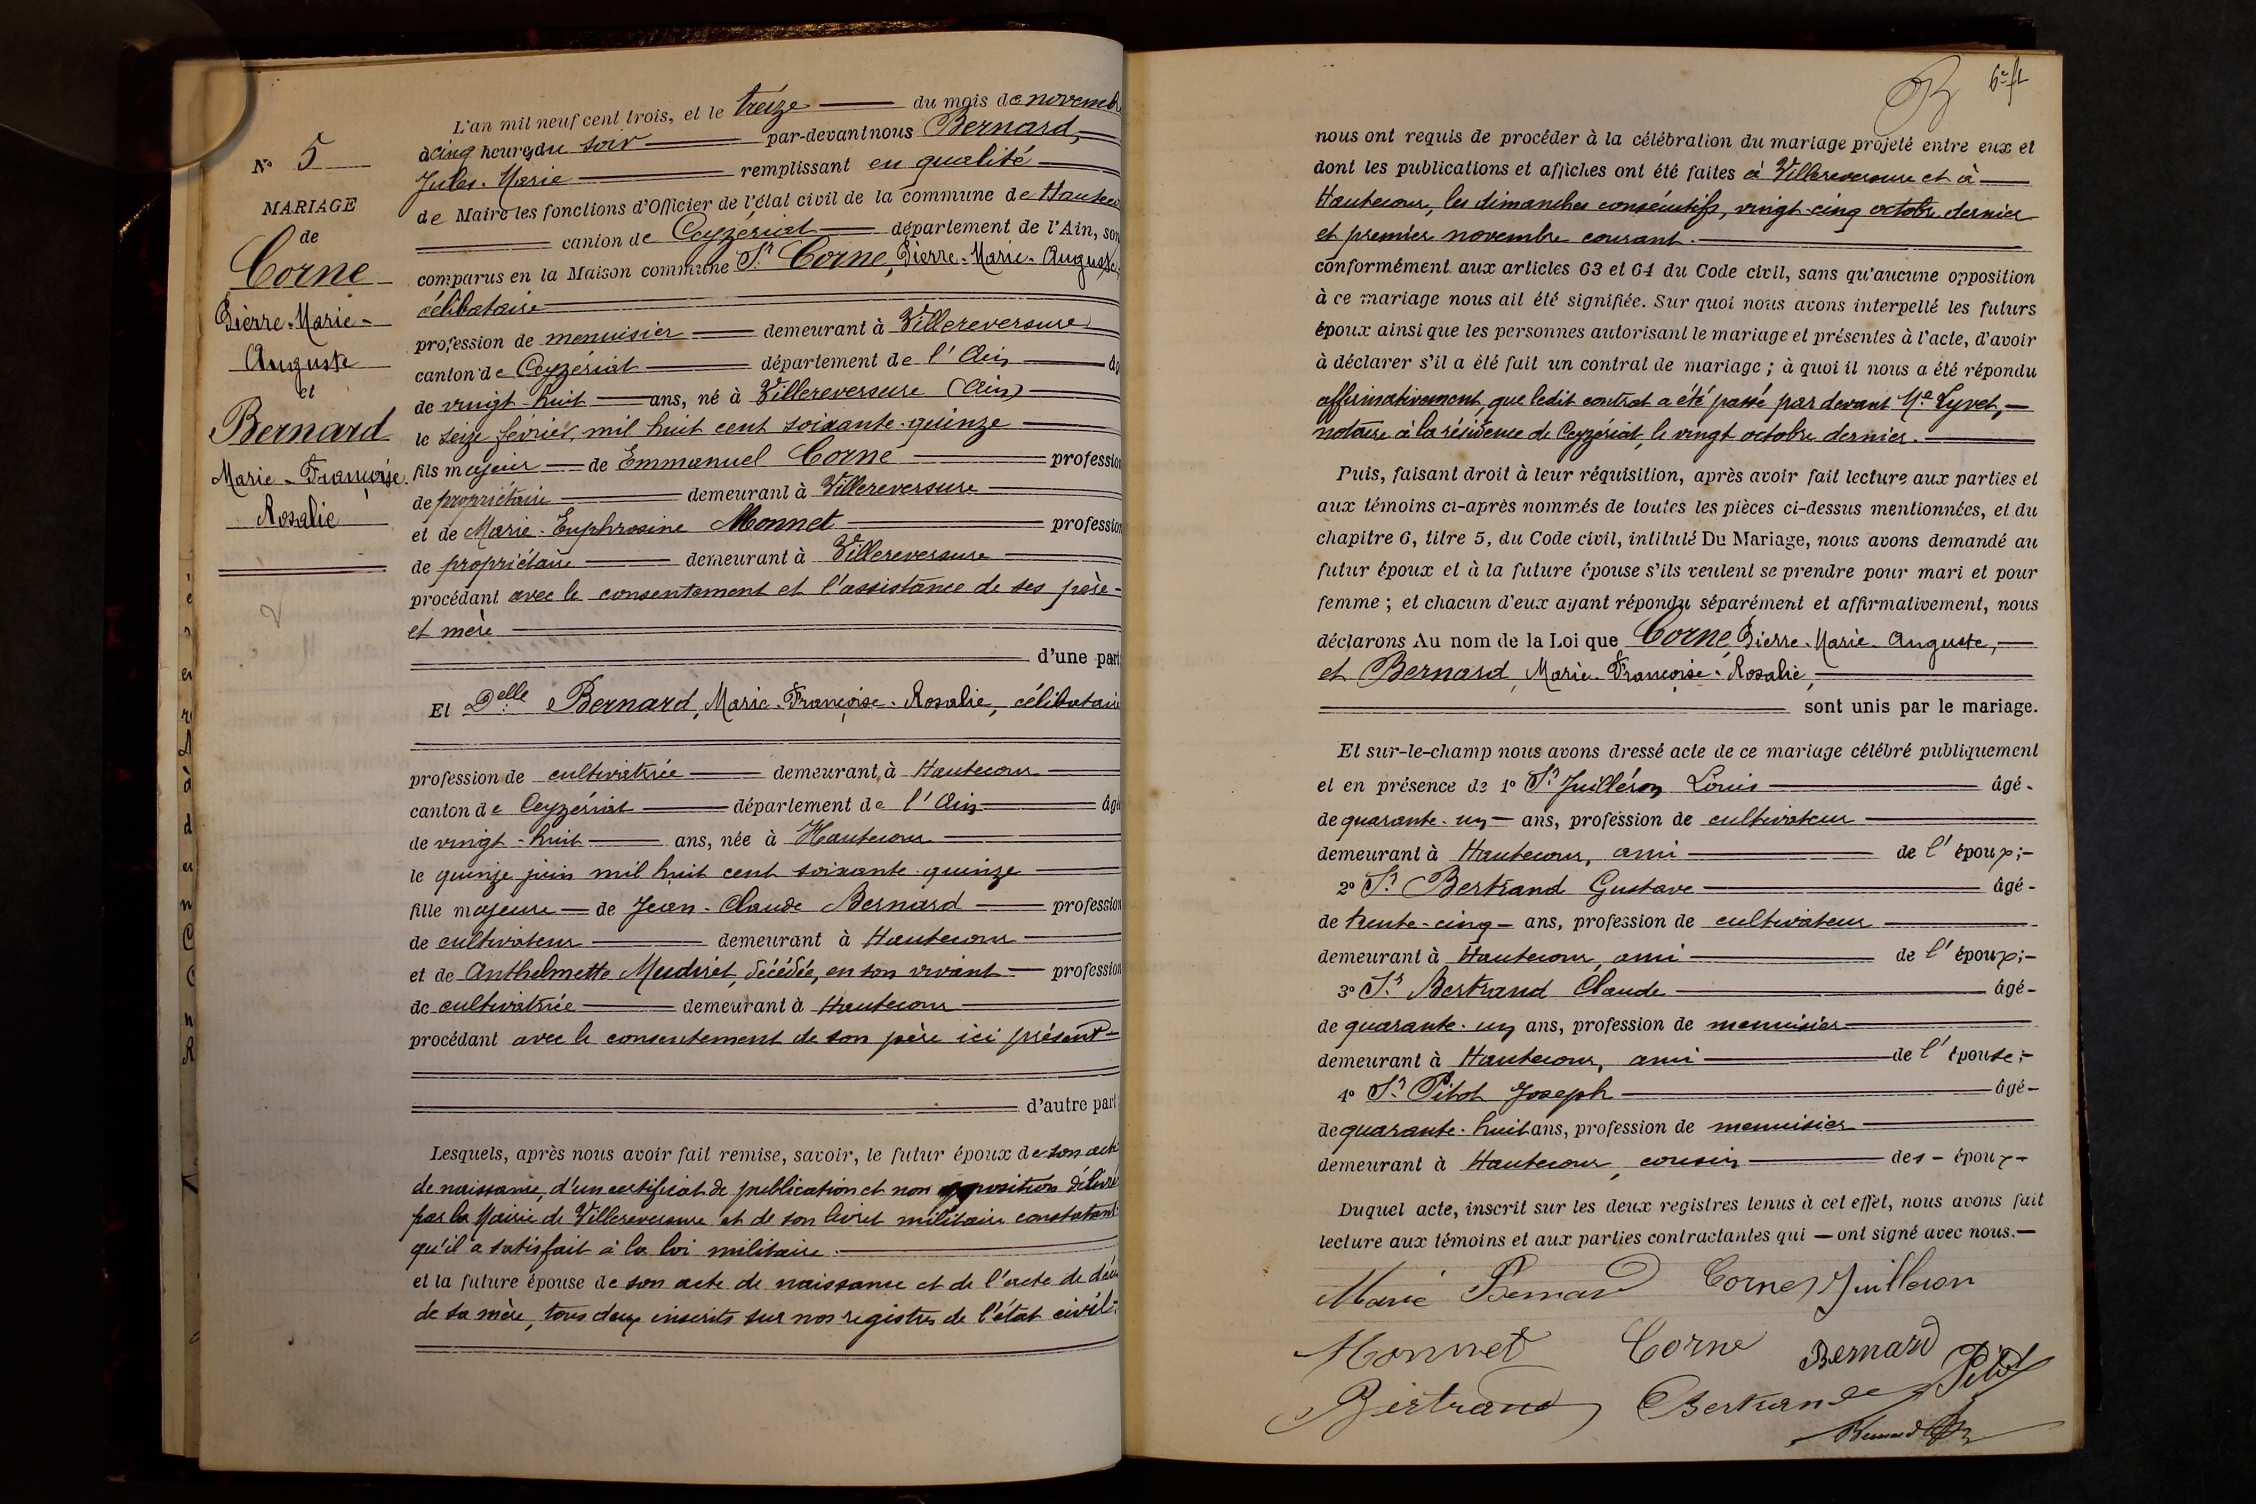 N° 5
MARIAGE
de
Corne
Pierre-Marie-
Auguste
et
Bernard
Marie-Françoise-
Rosalie
L'an mil neuf cent trois, et le treize du mois de novembre
à cinq heures du soir par-devant nous Bernard,
Jules-Marie remplissant en qualité
de Maire les fonctions d'Officier de l'état civil de la commune de Hautecour
canton de Ceyzériat département de l'Ain, son
comparus en la Maison commune Sr. Corne, Pierre-Marie-Auguste,
célibataire
profession de menuisier demeurant à Villereversure
canton de Ceyzériat département de l'Ain âg
de vingt-huit ans, né à Villereversure (Ain)
le seize février, mil huit cent soixante-quinze
fils majeur de Emmanuel Corne profession
de propriétaire demeurant à Villereversure
et de Marie-Euphrosine Monnet profession
de propriétaire demeurant à Villereversure
procédant avec le consentement et l'assistance de ses père-
et mère
d'une part
Et Delle Bernard, Marie-Françoise-Rosalie, célibataire
profession de cultivatrice demeurant à Hautecour
canton de Ceyzériat département de l'Ain âgé
de vingt-huit ans, née à Hautecour
le quinze juin mil huit cent soixante-quinze
fille majeure de Jean-Claude Bernard profession
de cultivateur demeurant à Hautecour
et de Anthelmette, décédée, en son vivant profession
de cultivatrice demeurant à Hautecour
procédant avec le consentement de son père ici présent
d'autre part
Lesquels, après nous avoir fait remise, savoir, le futur époux de son acte
de naissance, d'un certificat de publication et non opposition délivré
par la Mairie de Villereversure et de son livret militaire constatant
qu'il a satisfait à la loi militaire.
et la future épouse de son acte de naissance et de l'acte de décès
de sa mère, tous deux inscrits sur nos registres de l'état civil.
nous ont requis de procéder à la célébration du mariage projeté entre eux et
dont les publications et affiches ont été faites à Villereversure et à
Hautecour, les dimanches consécutifs, vingt-cinq octobre dernier
et premier novembre courant.
conformément aux articles 63 et 64 du Code civil, sans qu'aucune opposition
à ce mariage nous ait été signifiée. Sur quoi nous avons interpellé les futurs
époux ainsi que les personnes autorisant le mariage et présentes à l'acte, d'avoir
à déclarer s'il a été fait un contrat de mariage ; à quoi il nous a été répondu
affirmativement, que ledit contrat a été passé par devant Me Lyvet,
notaire à la résidence de Ceyzériat, le vingt octobre dernier.
Puis, faisant droit à leur réquisition, après avoir fait lecture aux parties et
aux témoins ci-après nommés de toutes les pièces ci-dessus mentionnées, et du
chapitre 6, titre 5, du Code civil, intitulé Du Mariage, nous avons demandé au
futur époux et à la future épouse s'ils veulent se prendre pour mari et pour
femme ; et chacun d'eux ayant répondu séparément et affirmativement, nous
déclarons Au nom de la Loi que Corne, Pierre-Marie-Auguste,
et Bernard, Marie-Françoise-Rosalie,
sont unis par le mariage.
Et sur-le-champ nous avons dressé acte de ce mariage célébré publiquement
et en présence de 1° Sr. Juilléron Louis âgé
de quarante-un ans, profession de cultivateur
demeurant à Hautecour, ami de l'époux;
2° Sr. Bertrand Gustave âgé
de trente-cinq ans, profession de cultivateur
demeurant à Hautecour, ami de l'époux;
3° Sr. Bertrand Claude âgé
de quarante-un ans, profession de menuisier
demeurant à Hautecour, ami de l'épouse;
4° Sr. Pitot Joseph âgé
de quarante-huit ans, profession de menuisier
demeurant à Hautecour, cousin des époux
Duquel acte, inscrit sur les deux registres tenus à cet effet, nous avons fait
lecture aux témoins et aux parties contractantes qui ont signé avec nous.
Marie Bernard Corne Juilleron
Monnet Corne Bernard
Bertrand Bertrand Pitot
Bernard